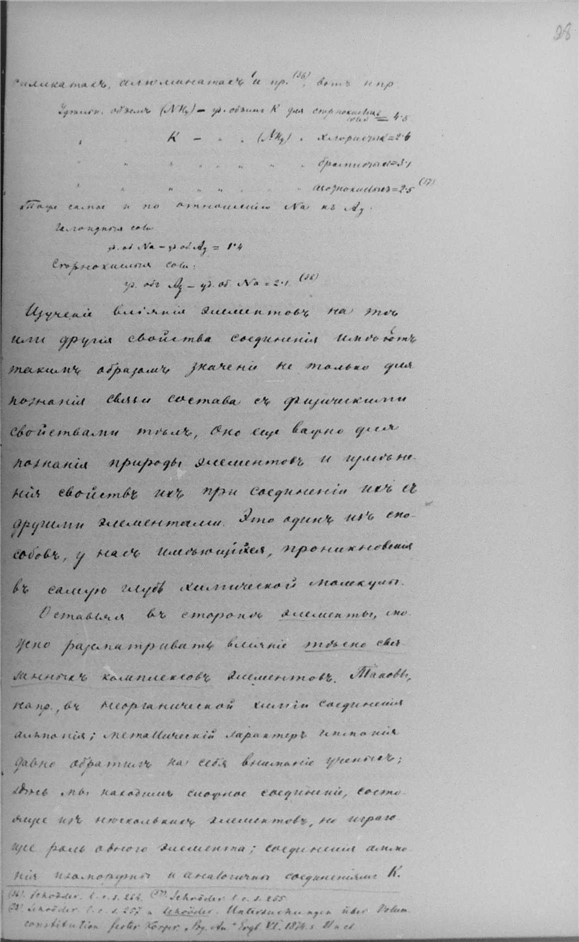 28
силикатахъ, алюминатахъ и пр. (56), вотъ н пр
Удѣльн. объемъ (NH4) – уд. объемъ K для сѣрнокислыхъ солей = 4.5
" K – " " (NH4) " хлористыхъ = 2.6
" " " " " " " бромистыхъ = 3.1
" " " " " " " азотнокислыхъ = 2.5 (57)
Тоже самое и по отношенію Na къ Ag.
Галоидныя соли
уд. об Na – уд об Ag = 1.4
Сѣрнокислыя соли:
уд. объ Ag – уд. об. Na = 2.1 (58)
Изученіе вліянія элементовъ на тѣ
или другія свойства соединенія имѣетъ
такимъ образомъ значеніе не только для
познанія связи состава съ физическими
свойствами тѣлъ, оно еще важно для
познанія природы элементовъ и измѣне-
нія свойствъ ихъ при соединеніи ихъ съ
другими элементами. Это одинъ изъ спо-
собовъ, у насъ имѣющійся, проникновенія
въ самую глубь химической молекулы.
Оставляя въ сторонѣ элементы, мо-
жно разсматривать вліяніе тѣсно свя
занныхъ комплексовъ элементовъ. Таковы,
напр., въ неорганической химіи соединенія
аммонія; металлическій характеръ аммонія
давно обратилъ на себя вниманіе ученыхъ;
здѣсь мы находимъ сложное соединеніе, состо-
ящее изъ нѣсколькихъ элементовъ, но играю-
щее роль одного элемента; соединенія аммо-
нія изоморфны и аналогичны соединеніямъ K.
(56). Schröder. l. c. s. 256, (57) Schröder l. c. s. 255
(58) Schröder l. c. s. 257 и Schröder. Untersuchungen über Volum
constitution fester Körper. Pog. An. Ergb. VI. 1874 s